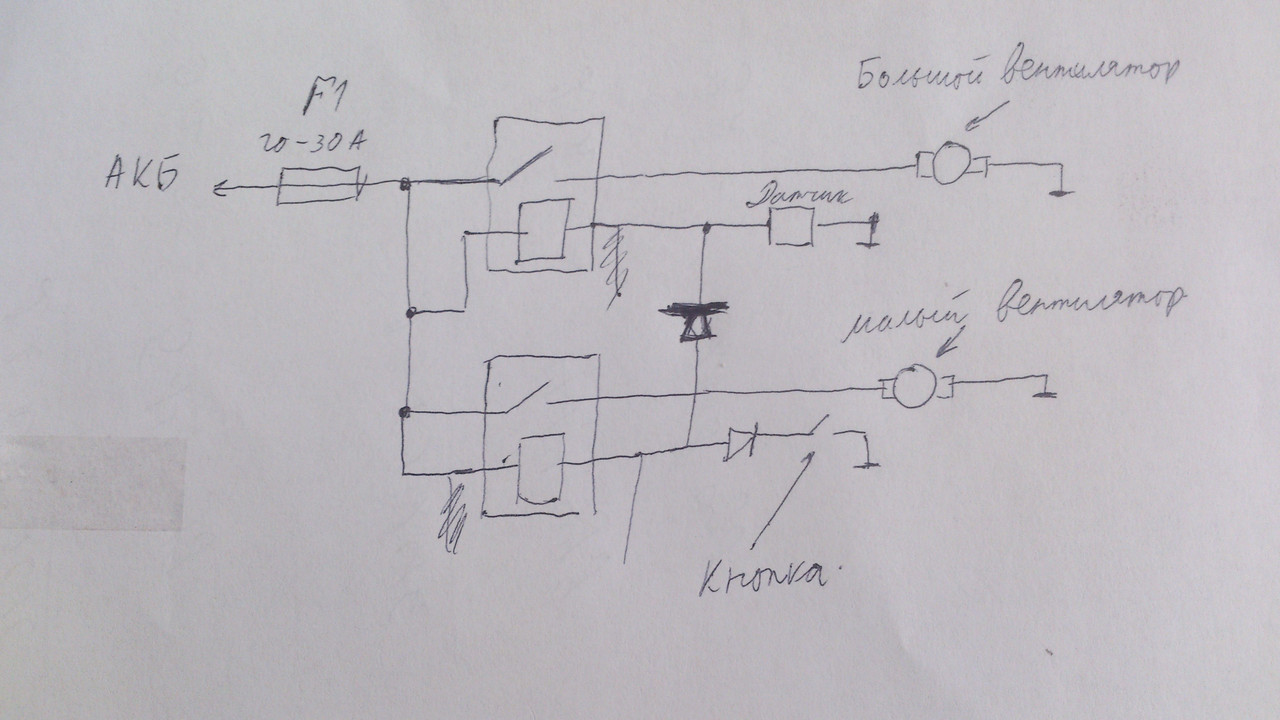 F1
20-30А
АКБ
Большой вентилятор
Датчик
малый вентилятор
Кнопка.